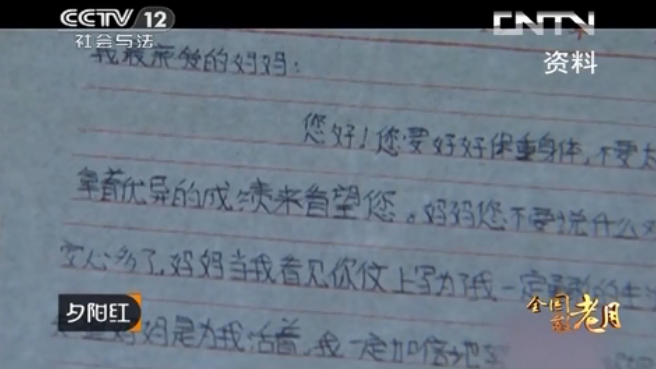 CCTV 12
社会与法
CNTV
资料
我最亲爱的妈妈:
您好!您要好好保重身体,不要太
拿着优异的成绩来看望您。妈妈您不要说什么对
安心多了,妈妈当我看见你仅上写为了我一定的生活
妈妈是为我活着,我一定加倍地
夕阳红
全国老月